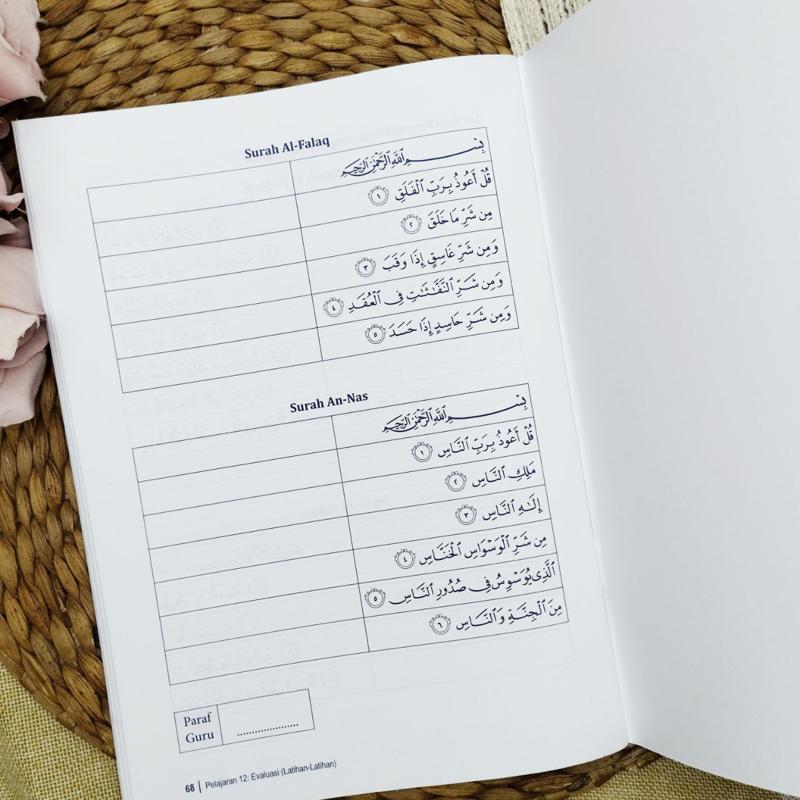 Surah Al-Falaq
بِسْمِ ٱللَّهِ ٱلرَّحْمَٰنِ ٱلرَّحِيمِ
قُلْ أَعُوذُ بِرَبِّ ٱلْفَلَقِ ١
مِن شَرِّ مَا خَلَقَ ٢
وَمِن شَرِّ غَاسِقٍ إِذَا وَقَبَ ٣
وَمِن شَرِّ ٱلنَّفَّٰثَٰتِ فِى ٱلْعُقَدِ ٤
وَمِن شَرِّ حَاسِدٍ إِذَا حَسَدَ ٥
Surah An-Nas
بِسْمِ ٱللَّهِ ٱلرَّحْمَٰنِ ٱلرَّحِيمِ
قُلْ أَعُوذُ بِرَبِّ ٱلنَّاسِ ١
مَلِكِ ٱلنَّاسِ ٢
إِلَٰهِ ٱلنَّاسِ ٣
مِن شَرِّ ٱلْوَسْوَاسِ ٱلْخَنَّاسِ ٤
ٱلَّذِى يُوَسْوِسُ فِى صُدُورِ ٱلنَّاسِ ٥
مِنَ ٱلْجِنَّةِ وَٱلنَّاسِ ٦
Paraf
Guru
....................
68 | Pelajaran 12: Evaluasi (Latihan-Latihan)